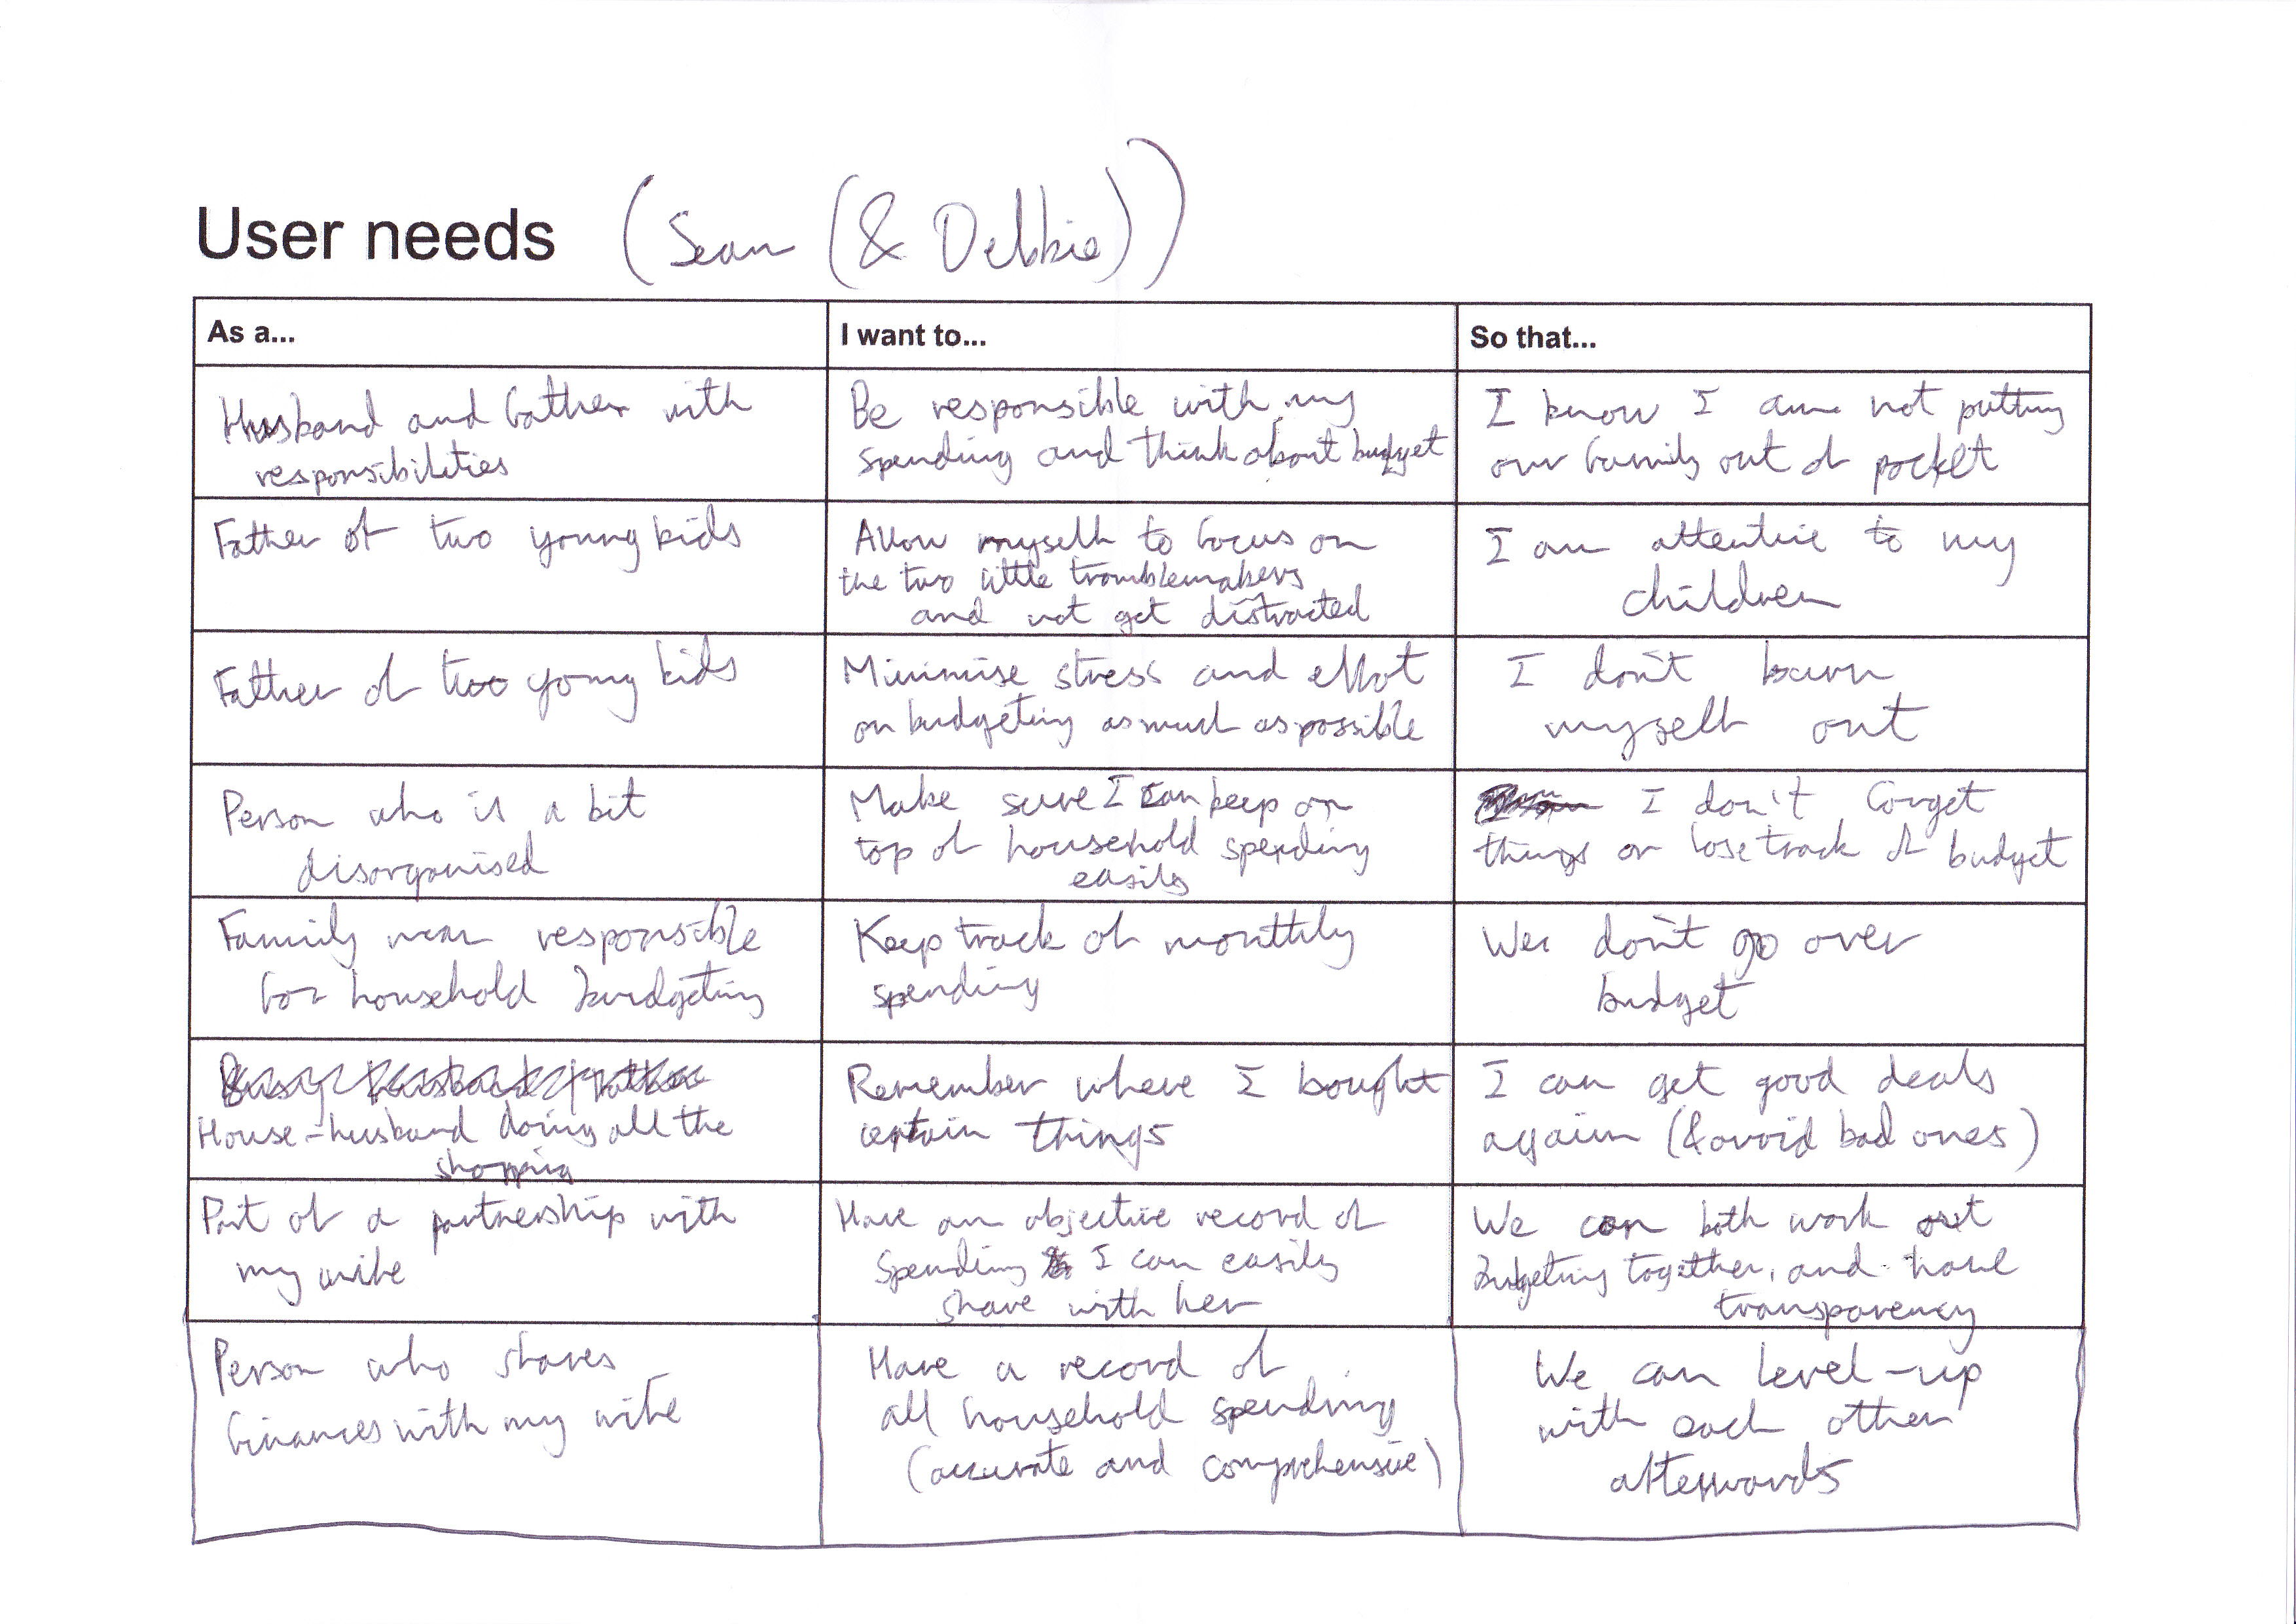 User needs (Sean (& Debbie))
As a...
I want to...
So that...
Husband and father with
responsibilities
Be responsible with my
spending and think about budget
I know I am not putting
our family out of pocket
Father of two young kids
Allow myself to focus on
the two little troublemakers
and not get distracted
I am attentive to my
children
Father of two young kids
Minimise stress and effot
on budgeting as much as possible
I don't burn
myself out
Person who is a bit
disorganised
Make sure I can keep on
top of household spending
easily
I don't forget
things or lose track of budget
Family man responsible
for household budgeting
Keep track of monthly
spending
We don't go over
budget
Busy husband / father
House-husband doing all the
shopping
Remember where I bought
certain things
I can get good deals
again (& avoid bad ones)
Part of a partnership with
my wife
Have an objective record of
spending I can easily
share with her
We can both work out
budgeting together, and have
transparency
Person who shares
finances with my wife
Have a record of
all household spending
(accurate and comprehensive)
We can level-up
with each other
afterwards